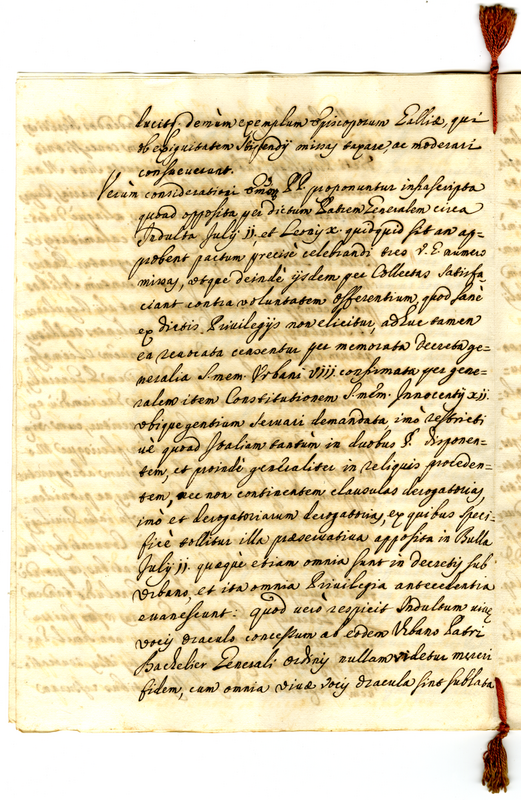 ducit demùm exemplum Episcoporum Galliæ, qui
ob exiguitatem Stipendij missas taxare, ac moderari
consueverunt.
Verùm consideration PP. proponuntur infrascripta
quod opposita per dictum Patrem Generalem circa
Indulta Julij II. et Leonis X. quidquid sit an ap=
probent pactum precisè celebrandi tres v. E. numero
missas, utque deindè ijsdem per Collectas satisfa
ciant contra voluntatem offerentium, quod sanè
ex dictis Privilegijs non elicitur, adhuc tamen
ea revocata censentur per memorata decreta ge=
neralia S. mem. Urbani VIII. confirmata per gene=
ralem item Constitutionem S. mem. Innocentij XII.
ubique gentium servari demandata imò restricti
vè quoad Italiam tantùm in duobus §. disponen=
tem, et proindè generaliter in reliquis proceden=
tem, nec non continentem clausulas derogatorias,
imò et derogatoriarum derogatorias, ex quibus speci=
ficè tollitur illa præservativa apposita in Bulla
Julij II. quæque etiam omnia sunt in decretis sub
Urbano, et ita omnia Privilegia antecedentia
evanescunt: quod verò respicit Indultum vivæ
vocis oraculo concessum ab eodem Urbano Patri
Bachelier Generali Ordinis nullam videtur mereri
fidem, cum omnia vivæ vocis oracula sint sublata